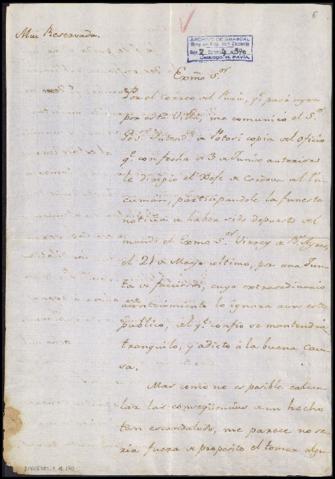 Mui Reservada.
ARCHIVO DE ABASCAL
Exmõ S.or
Por el correo del Cuzco, q.e pasó ayer
por esta Villa, me comunicó el S.
Gov.r Intend.te de Potosí copia del oficio
q.e con fecha de 3 de Junio anterior
le dirigió el Gefe de Cordova al Tu
cumán, participandole la funesta
noticia de haber sido depuesto del
mando el Exmo S.or Virrey de B.s Ayres
el 21 de Mayo ultimo, por una Jun
ta de facciosos, cuyo extraordinario
acontecimiento lo ignora aun este
publico, el q.e confio se mantendrá
tranquilo, y adicto á la buena Cau
sa.
Mas como no es posible calcu
lar las conseqüencias de un hecho
tan escandaloso, me parece no se
ria fuera de proposito el tomar algu